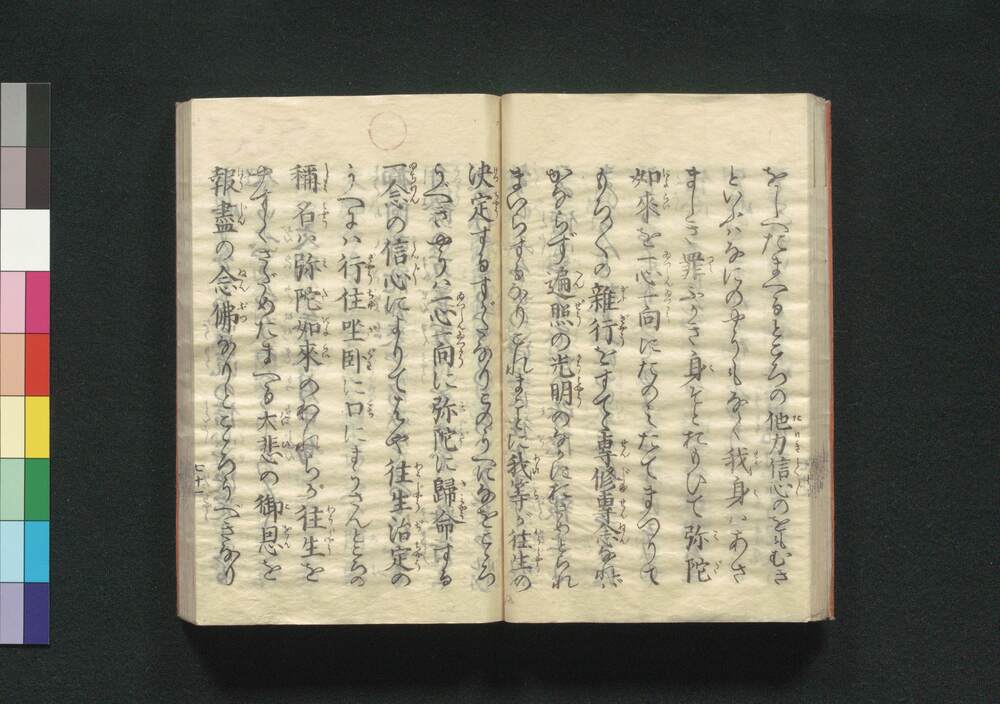 をしへたまへるところの他力信心のをもむき
といふはなにのやうもなく我身はあさ
ましき罪ふかき身そとおもひて弥陀
如來を一心一向にたのみたてまつりて
もろ〳〵の雜行をすてゝ專修專念なれは
かならず遍照の光明のなかにおさめとられ
まいらするなりこれまことに我等か往生の
決定するすかたなりこのうへになをこゝろ
うへきやうは一心一向に弥陀に歸命する
一念の信心によりてはや往生治定の
うへには行住坐臥に口にまうさんところの
稱名は弥陀如來のわれらか往生を
やすくさだめたまへる大悲の御恩を
報盡の念佛なりとこゝろうべきなり
七十一